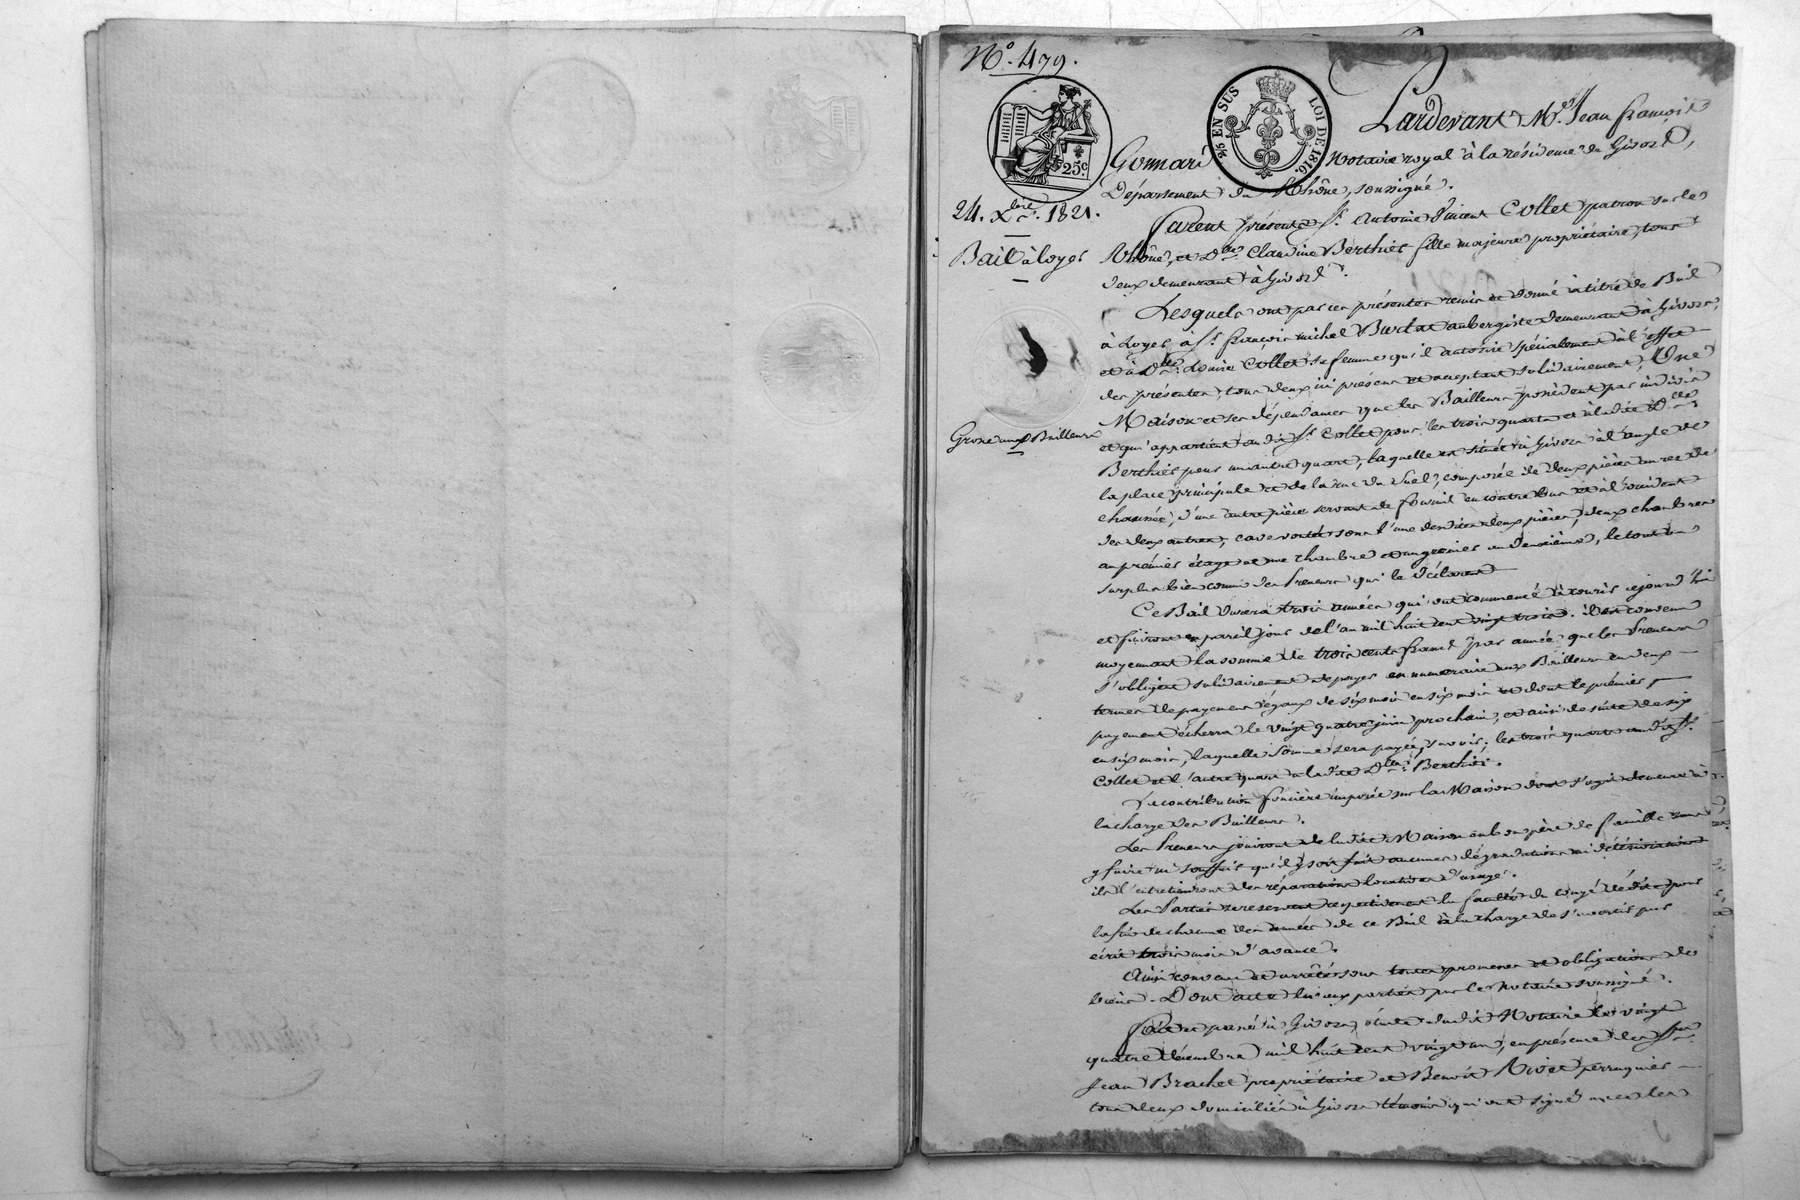 N.° 479.
25 EN SUS LOI DE 1816.
25c
24. Xbre 1821.
Bail à loyer
Grosse aux Bailleurs
Pardevant Me. Jean françois
Gonnard Notaire royal à la résidence de Givors,
Département du Rhône, soussigné.
furent présents Sr. Antoine Vincent Collet patron sur le
Rhône, et Dlle. Claudine Berthier fille majeure propriétaire, tous
deux demeurant à Givors.
Lesquels ont par ces présentes remis et donné à titre de Bail
à Loyer, à Sr. françois michel Burlat aubergiste demeurant à Givors,
et à De. Louise Collet sa femme qu'il autorise spécialement à l'effet
des présentes, tous deux ici présens et acceptant solidairement, Une
Maison et ses dépendances que les Bailleurs possèdent par indivis
et qui appartient au dit Sr. Collet pour les trois quarts et à la dite Dlle.
Berthier pour un autre quart, laquelle est située à Givors à l'angle de
la place principale et de la rue du Suel, composée de deux pièces au rez de
chaussée, d'une autre pièce servant de fournil en contre bas et à l'occident
des deux autres, cave voutée sous l'une des dites deux pièces, deux chambres
au premier étage et une chambre et un grenier au deuxième, le tout au
surplus bien connu des Preneurs qui le déclarent
Ce Bail durera trois années qui ont commencé à courir cejourd'hui
et finiront en pareil jour de l'an mil huit cent vingt trois. il est convenu
moyennant la somme de trois cents francs par année que les Preneurs
s'obligent solidairement de payer en numeraire aux Bailleurs en deux
termes de payemens égaux de six mois en six mois et dont le premier
payement écherra le vingt quatre juin prochain, et ainsi de suite de six
en six mois, laquelle somme sera payée, savoir; les trois quarts au dit Sr.
Collet et l'autre quart à la dite Dlle. Berthier.
La contribution foncière imposée sur la Maison dont s'agit demeure à
la charge des Bailleurs.
Les Preneurs jouiront de la dite Maison en bon père de famille sans
y faire ni souffrir qu'il y soit fait aucunes dégradations ni détériorations
ils l'entretiendront des réparations locatives d'usage.
Les Parties se reservent respectivement la faculté du congé dédite pour
la fin de chacune des années de ce Bail à la charge de s'avertir par
écrit trois mois d'avance.
Ainsi convenu et arrêté sous toutes promesses et obligations de
biens. Dont acte lu aux parties par le Notaire soussigné.
Fait et passé à Givors, étude du dit Notaire le vingt
quatre décembre mil huit cent vingt un, en présence des Srs.
Jean Brachet propriétaire et Benoit Rivet perruquier
tous deux domiciliés à Givors témoins qui ont signé avec les